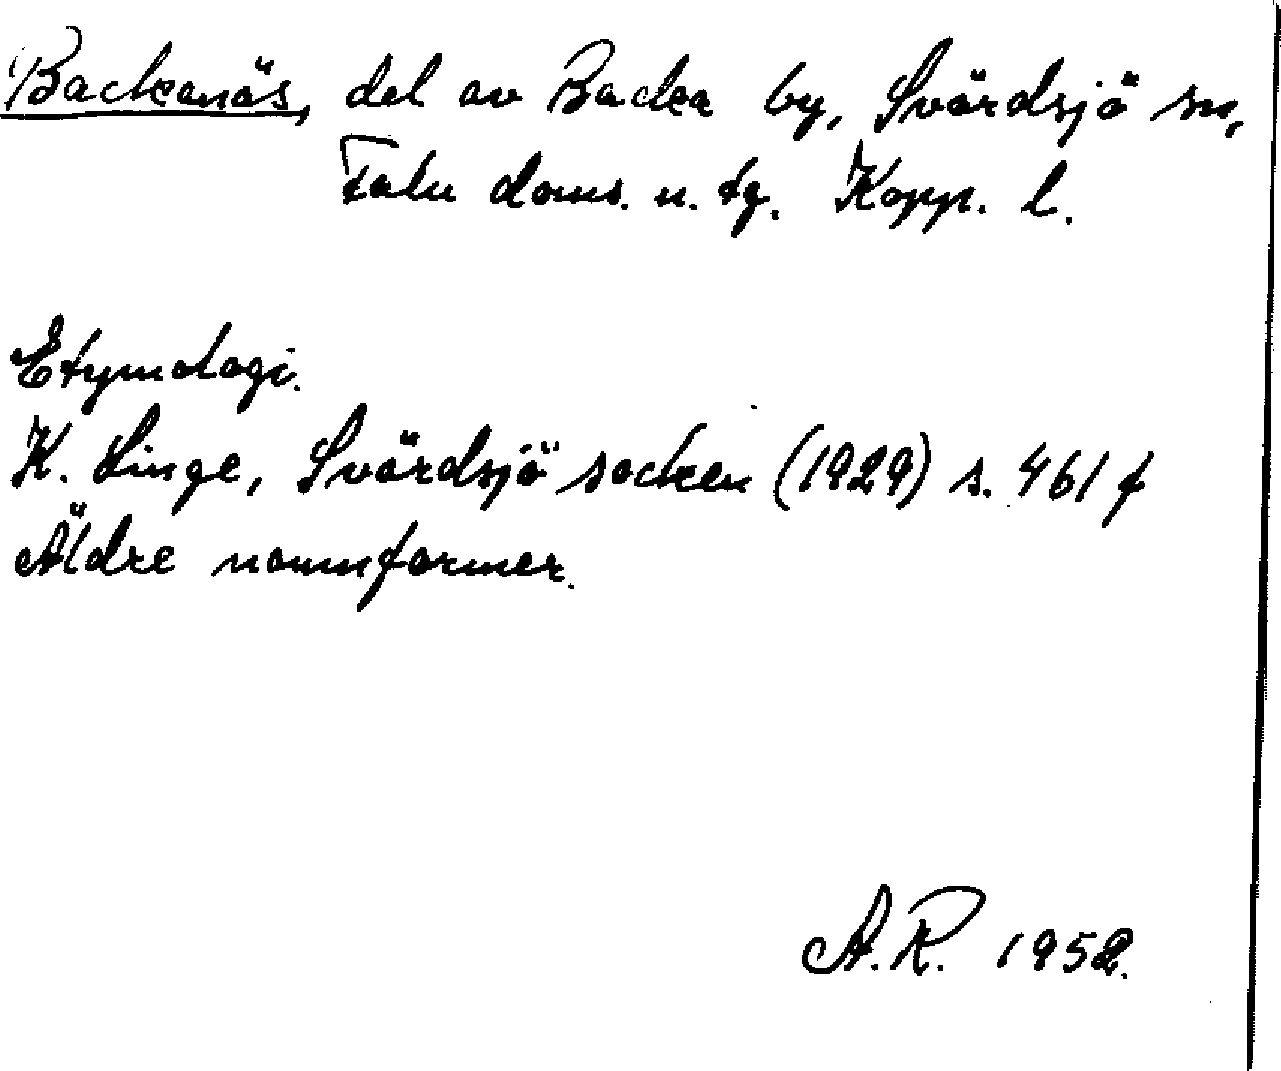 Backanäs, del av Backa by, Svärdsjö sn,
Falu doms. n. tg. Kopp. l.
Etymologi.
K. Linge, Svärdsjö socken (1929) s. 461 f
Äldre namnformer.
A.R. 1952.